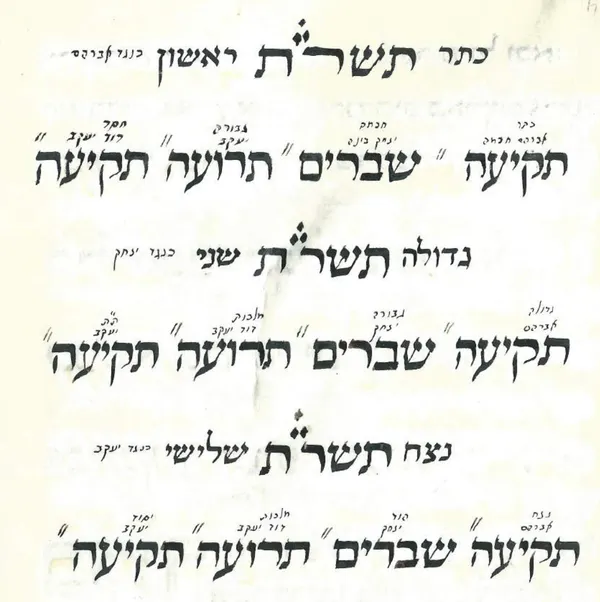 כתר תשר״ת ראשון כנגד אברהם
כתר גבורה חסד
אברהם חכמה יצחק בינה יעקב דוד יעקב
תקיעה״ שברים״ תרועה״ תקיעה״
גדולה תשר״ת שני כנגד יצחק
גדולה גבורה מלכות ת״ת
אברהם יצחק דוד יעקב יעקב
תקיעה״ שברים״ תרועה״ תקיעה״
נצח תשר״ת שלישי כנגד יעקב
נצח הוד מלכות יסוד
אברהם יצחק דוד יעקב יעקב
תקיעה״ שברים״ תרועה״ תקיעה״